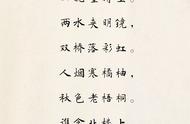 两水夹明镜,
双桥落彩虹。
人烟寒橘柚,
秋色老梧桐。
谁念北楼上